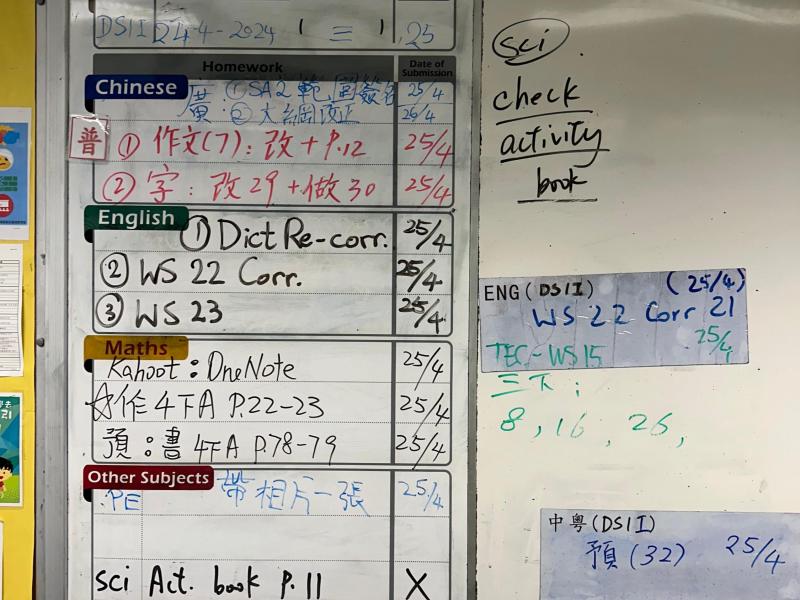 DS1I 24-4-2024 ( 三 ) 25
Homework Date of Submission
Chinese
廣: ① SA2 範圍簽名 25/4
② 大綱改正 26/4
普 ① 作文(7): 改 + P.12 25/4
② 字: 改29 + 做30 25/4
English
① Dict Re-corr. 25/4
② WS 22 Corr. 25/4
③ WS 23 25/4
Maths
Kahoot: OneNote 25/4
☆作 4下A P.22-23 25/4
預: 書 4下A P.78-79 25/4
Other Subjects
PE 帶相片一張 25/4
sci Act. book P.11 X
sci
check
activity
book
ENG (DS1I) (25/4)
WS 22 Corr 21
TEC - WS15 25/4
三下:
8, 16, 26,
中粵(DS1I)
預(32) 25/4